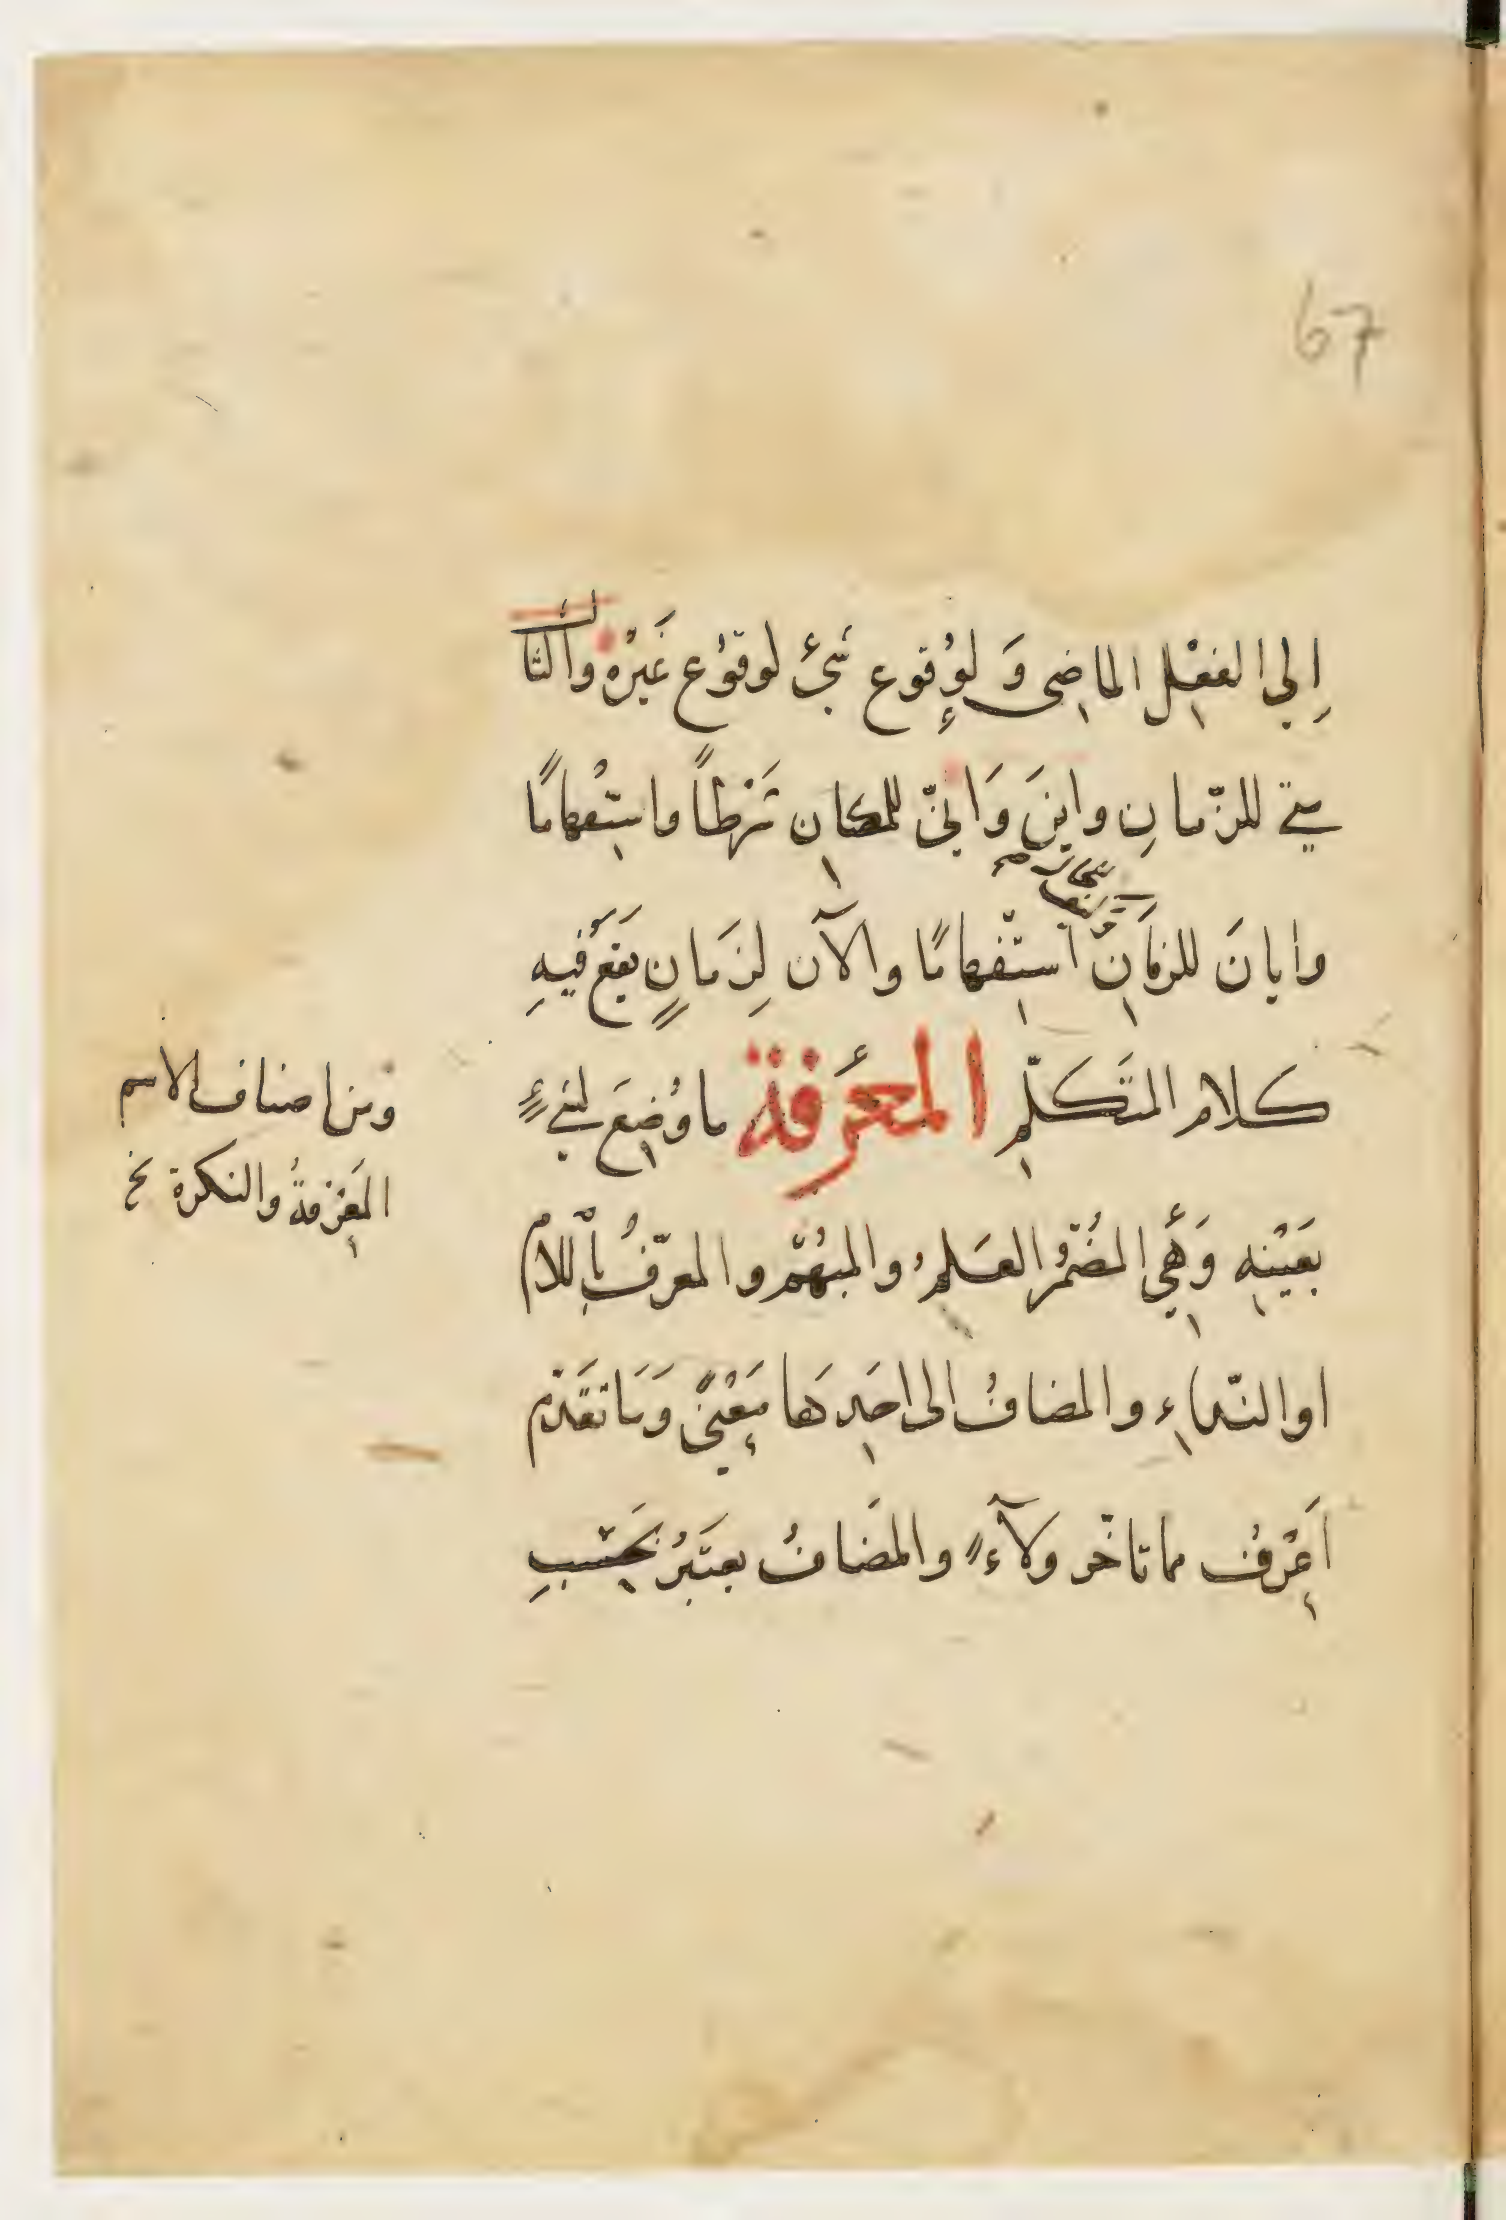 67
إلى الفعْل الماضى وَ لوُقوع شيْءٍ لوقوُع غَيْرْه والثالث
متى للزّمانِ واينَ وَانّىٰ للمكان شَرْطاً واستِفْهامًا
وايانَ للزمَان استِفْهامًا والآن لِزَمانٍ يقعَ فيهِ
كلام المتَكلّمِ المعرفة ما وُضِعَ لشئٍ
بعَيْنِهِ وَهِيَ المُضْمَرُ العَلمُ والمبْهَمُ والمعرّفُ باللام
او النّداءِ والمضافُ الى احَدِهَا مَعْنًى وَمَا تقَدّم
اَعْرفُ مما تاخّر وِلآءً والمُضَافُ يعتَبرُ بحَسْبِ
ومن اصناف الاسم
المعْرفةُ والنكرة نخ